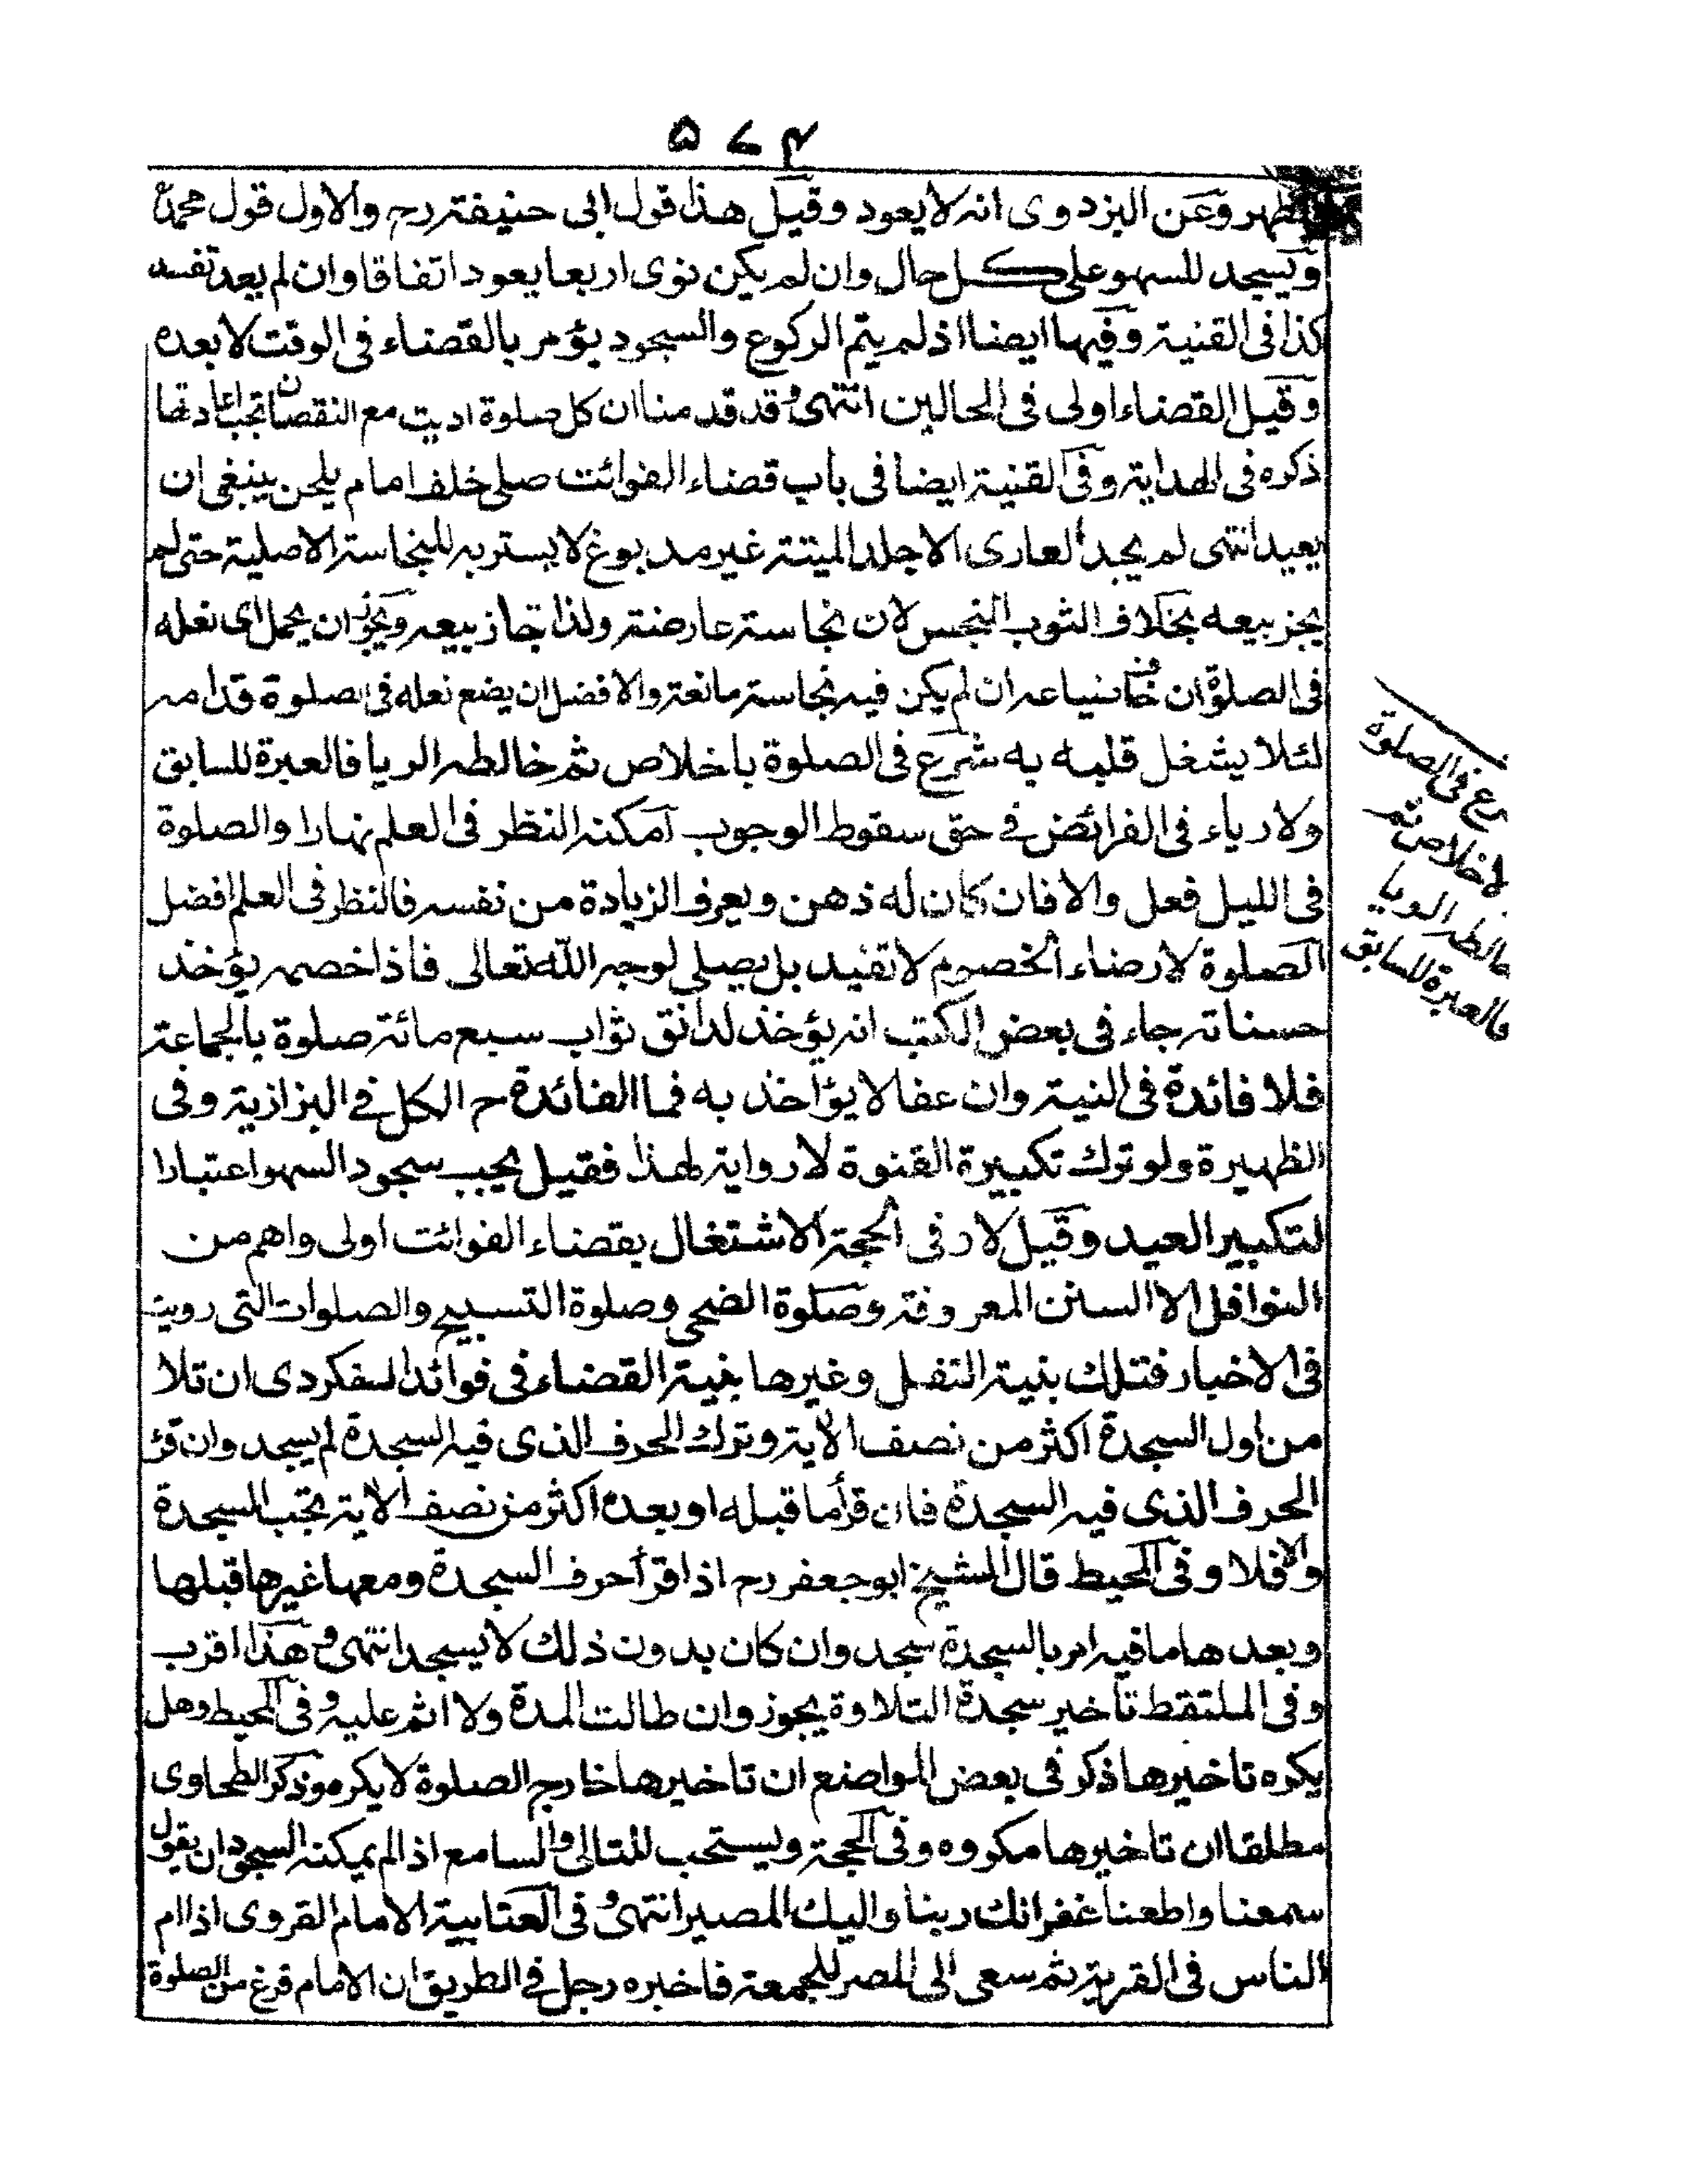 ۵۷۴
الظهر وعن البزدوى انه لا يعود وقيل هذا قول ابى حنيفة رح والاول قول محمد رح
ويسجد للسهو على كل حال وان لم يكن نوى اربعا يعود اتفاقا وان لم يعد تفسد
كذا فى القنية وفيها ايضا اذ لم يتم الركوع والسجود يؤمر بالقضاء فى الوقت لا بعده
وقيل القضاء اولى فى الحالين انتهى وقد قدمنا ان كل صلوة اديت مع النقصان تجب اعادتها
ذكره فى الهداية وفى القنية ايضا فى باب قضاء الفوائت صلى خلف امام يلحن ينبغى ان
يعيد انتهى لم يجد العارى الا جلد الميتة غير مدبوغ لا يستر به للنجاسة الاصلية حتى لم
يجز بيعه بخلاف الثوب النجس لان نجاسة عارضة ولذا جاز بيعه ويجوز ان يحمل اى نعله
فى الصلوة ان خاف ضياعه ان لم يكن فيه نجاسة مانعة والافضل ان يضع نعله فى الصلوة قدامه
لئلا يشغل قلبه به شرع فى الصلوة باخلاص ثم خالطه الريا فالعبرة للسابق
ولا رياء فى الفرائض فى حق سقوط الوجوب أمكنه النظر فى العلم نهارا والصلوة
فى الليل فعل والا فان كان له ذهن ويعرف الزيادة من نفسه فالنظر فى العلم افضل
الصلوة لارضاء الخصوم لا تفيد بل يصلى لوجه الله تعالى فاذا خصمه يؤخذ
حسناته جاء فى بعض الكتب انه يؤخذ لدانق ثواب سبع مائة صلوة بالجماعة
فلا فائدة فى النية وان عفا لا يؤاخذ به فما الفائدة ح الكل فى البزازية وفى
الظهيرة ولو ترك تكبيرة القنوة لا رواية لهذا فقيل يجب سجود السهو اعتبارا
لتكبير العيد وقيل لا رفى الحجة الاشتغال بقضاء الفوائت اولى واهم من
النوافل الا السنن المعروفة وصلوة الضحى وصلوة التسبيح والصلوات التى رويت
فى الاخبار فتلك بنية النفل وغيرها بنية القضاء فى فوائد السفكردى ان تلا
من اول السجدة اكثر من نصف الاية وترك الحرف الذى فيه السجدة لم يسجد وان قرٔ
الحرف الذى فيه السجدة فان قرأ ما قبله او بعده اكثر من نصف الاية تجب السجدة
والا فلا وفى المحيط قال الشيخ ابو جعفر رح اذا قرأ حرف السجدة ومعها غيرها قبلها
وبعدها ما فيه امر بالسجدة سجد وان كان بدون ذلك لا يسجد انتهى وهذا اقرب
وفى الملتقط تأخير سجدة التلاوة يجوز وان طالت المدة ولا اثم عليه وفى المحيط وهل
يكره تاخيرها ذكر فى بعض المواضع ان تاخيرها خارج الصلوة لا يكره وذكر الطحاوى
مطلقا ان تاخيرها مكروه وفى الحجة ويستحب للتالى والسامع اذا لم يمكنه السجود ان يقول
سمعنا واطعنا غفرانك ربنا واليك المصير انتهى وفى العتابية الامام القروى اذا ام
الناس فى القرية ثم سعى الى المصر للجمعة فاخبره رجل فى الطريق ان الامام فرغ من الصلوة
رع فى الصلوة
لاخلاص ثم
خالطه الريا
فالعبرة للسابق